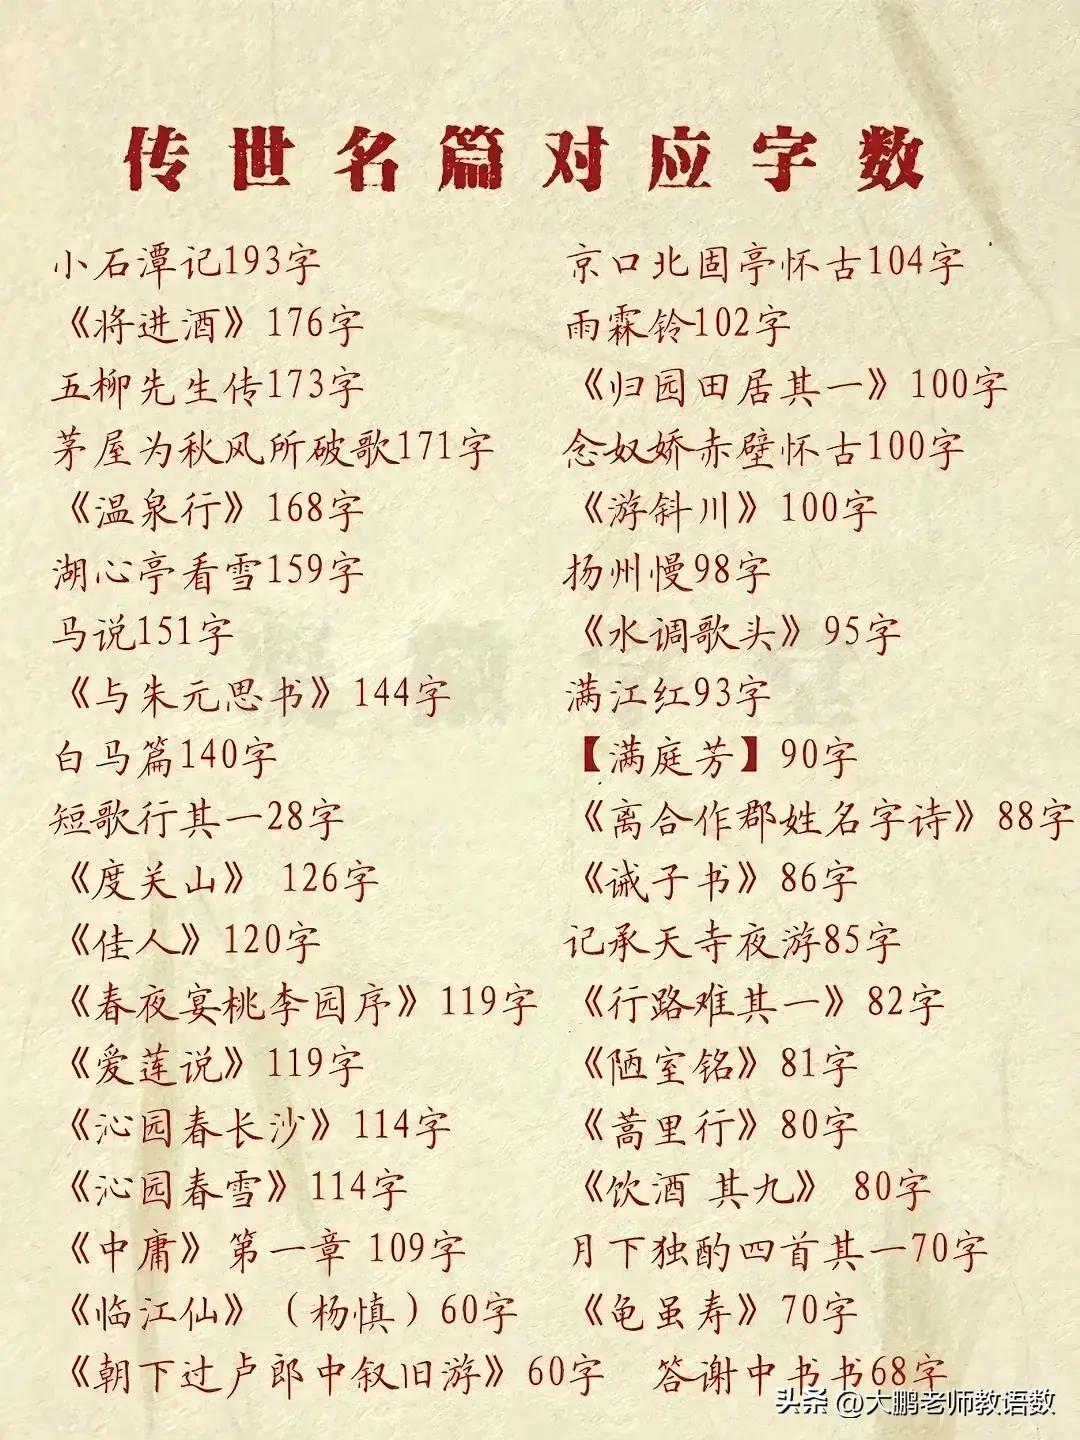 传世名篇对应字数
小石潭记193字
《将进酒》176字
五柳先生传173字
茅屋为秋风所破歌171字
《温泉行》168字
湖心亭看雪159字
马说151字
《与朱元思书》144字
白马篇140字
短歌行其一28字
《度关山》 126字
《佳人》120字
《春夜宴桃李园序》119字
《爱莲说》119字
《沁园春长沙》114字
《沁园春雪》114字
《中庸》第一章 109字
《临江仙》（杨慎）60字
《朝下过卢郎中叙旧游》60字
京口北固亭怀古104字
雨霖铃102字
《归园田居其一》100字
念奴娇赤壁怀古100字
《游斜川》100字
扬州慢98字
《水调歌头》95字
满江红93字
【满庭芳】90字
《离合作郡姓名字诗》88字
《诫子书》86字
记承天寺夜游85字
《行路难其一》82字
《陋室铭》81字
《蒿里行》80字
《饮酒 其九》 80字
月下独酌四首其一70字
《龟虽寿》70字
答谢中书书68字
头条@大鹏老师教语数